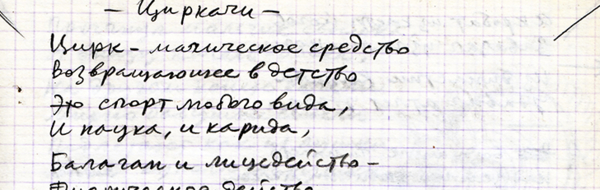 — Циркачи —
Цирк – магическое средство
Возвращающее в детство
Это спорт любого вида,
И наука, и карида,
Балаган и лицедейство –
Физическое действо